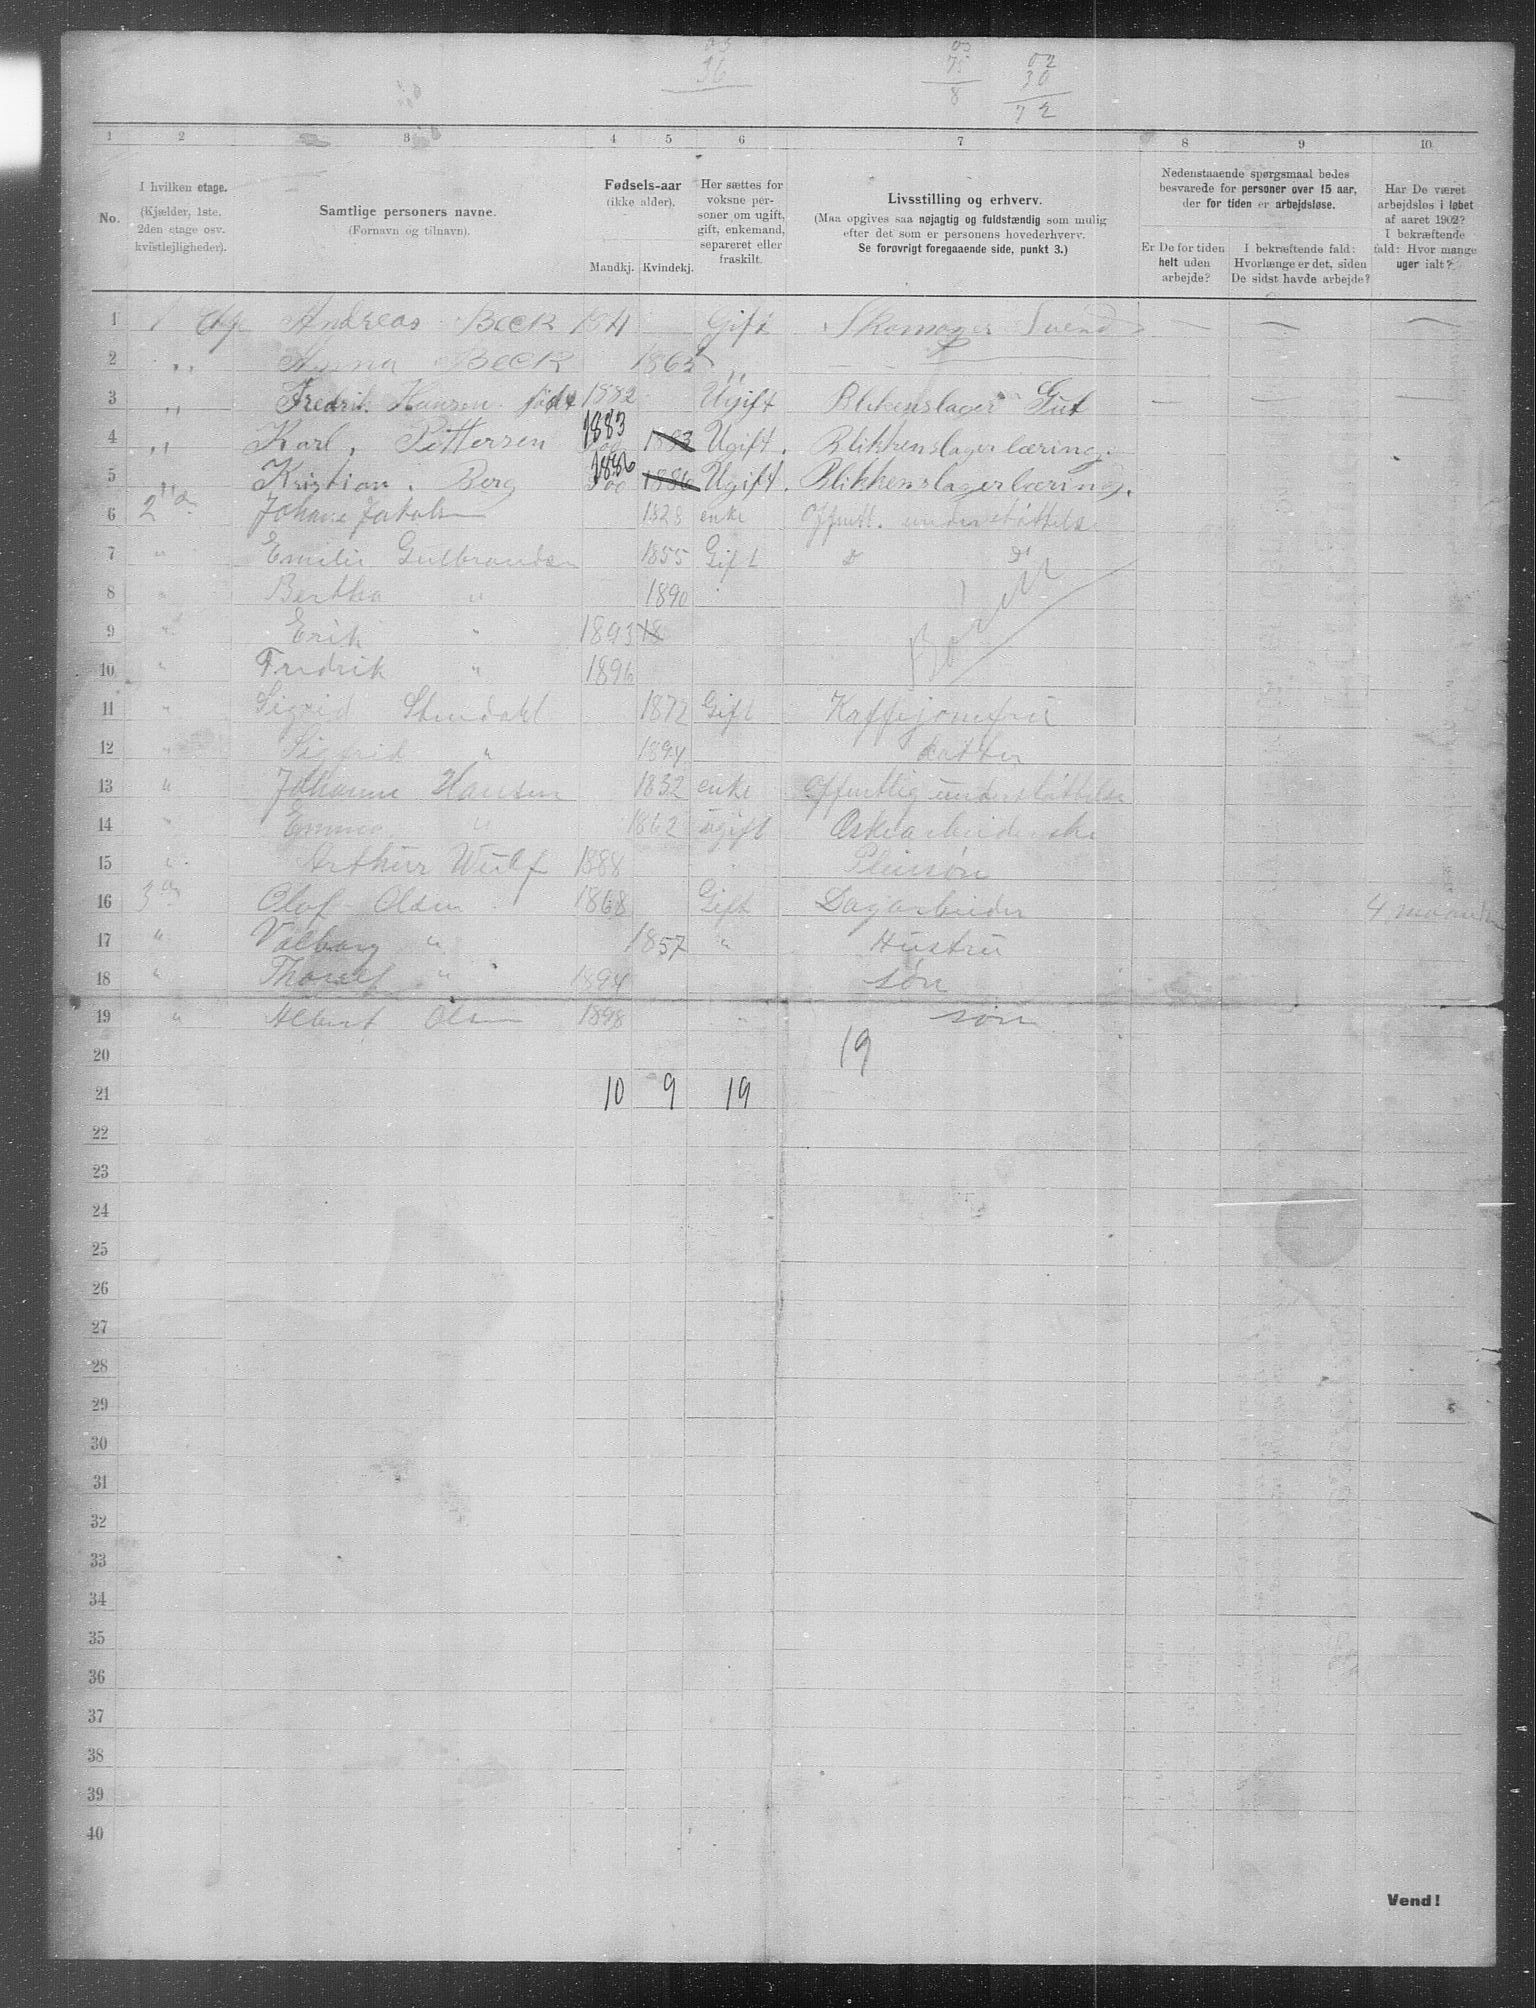 36
75
8
02
30
72
1 2 3 4 5 6 7 8 9 10
No.
I hvilken etage.
(Kjælder, 1ste.
2den etage osv.
kvistlejligheder).
Samtlige personers navne.
(Fornavn og tilnavn).
Fødsels-aar
(ikke alder).
Mandkj. Kvindekj.
Her sættes for
voksne per-
soner om ugift,
gift, enkemand,
separeret eller
fraskilt.
Livsstilling og erhverv.
(Maa opgives saa nøjagtig og fuldstændig som mulig
efter det som er personens hovederhverv.
Se forøvrigt foregaaende side, punkt 3.)
Nedenstaaende spørgsmaal bedes
besvarede for personer over 15 aar,
der for tiden er arbejdsløse.
Er De for tiden
helt uden
arbejde?
I bekræftende fald:
Hvorlænge er det, siden
De sidst havde arbejde?
Har De været
arbejdsløs i løbet
af aaret 1902?
I bekræftende
fald: Hvor mange
uger ialt?
1 1 Andreas Beck Gift Skomager Svend — — —
2 „ Anna Beck 1863 „
3 „ Fredrik Hansen født 1882 Ugift Blikenslager Gut — — —
4 „ Karl. Pettersen 1883 1883 Ugift. Blikkenslagerlæring.
5 „ Kristian. Berg 1886 1886 Ugift. Blikkenslagerlæring.
6 2 Johane Jakobsen 1828 enke Offentl. understøttelse
7 " Emilie Gulbrandsen 1855 Gift d d°
8 " Bertha " 1890
9 " Erik " 1893 18
10 " Fredrik " 1896
11 " Sigrid Stendahl 1872 Gift Kaffejomfru
12 " Sigfrid " 1894 datter
13 " Johanne Hansen 1832 enke Offentlig understøttelse
14 " Emma " 1862 ugift Æskearbeiderske
15 " Arthur Wulf 1888 Pleiesøn
16 3 Olaf Olsen 1868 Gift Dagarbeider 4 maaneder
17 " Valborg " 1857 " Hustru
18 " Thorolf " 1894 søn
19 " Albert Olsen 1898 søn
20 19
21 10 9 19
22
23
24
25
26
27
28
29
30
31
32
33
34
35
36
37
38
39
40
Vend!